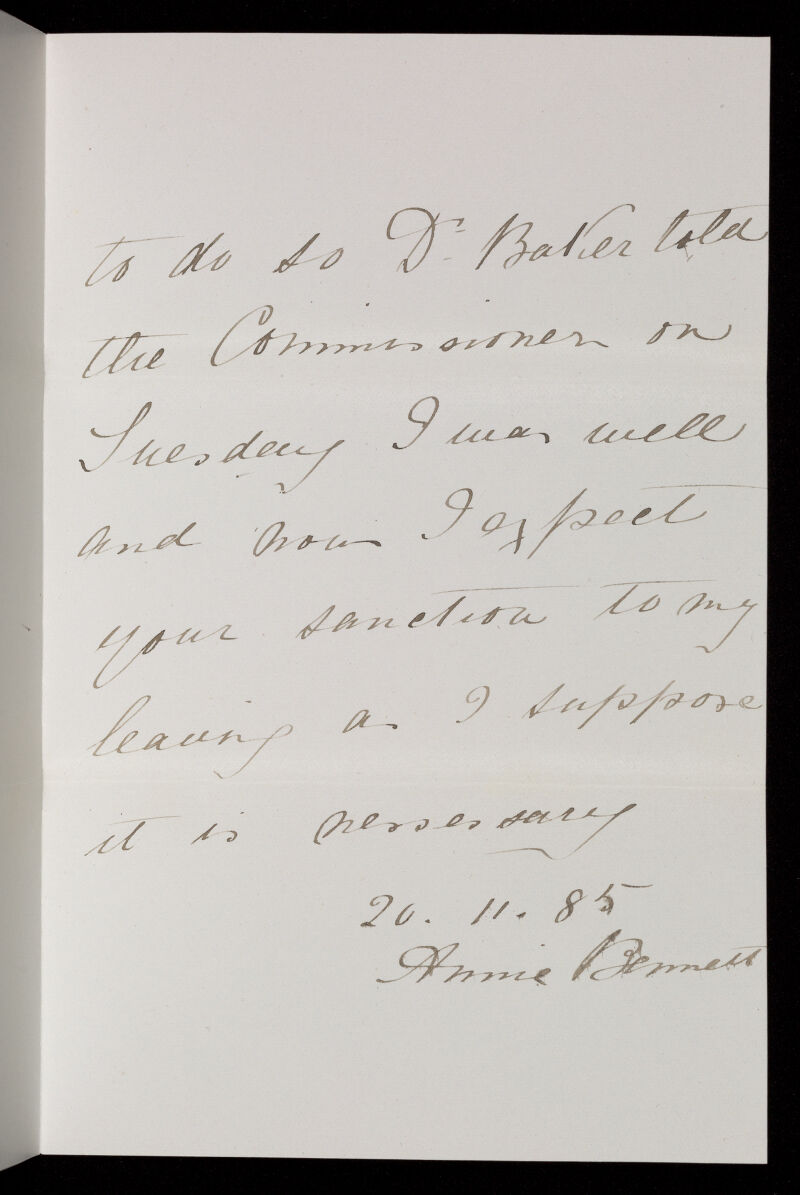 to do so Dr. Baker told
the Commissioner on
Tuesday I was well
and now I expect
your sanction to my
leaving as I suppose
it is nessessary
20. 11. 85
Annie Bennett